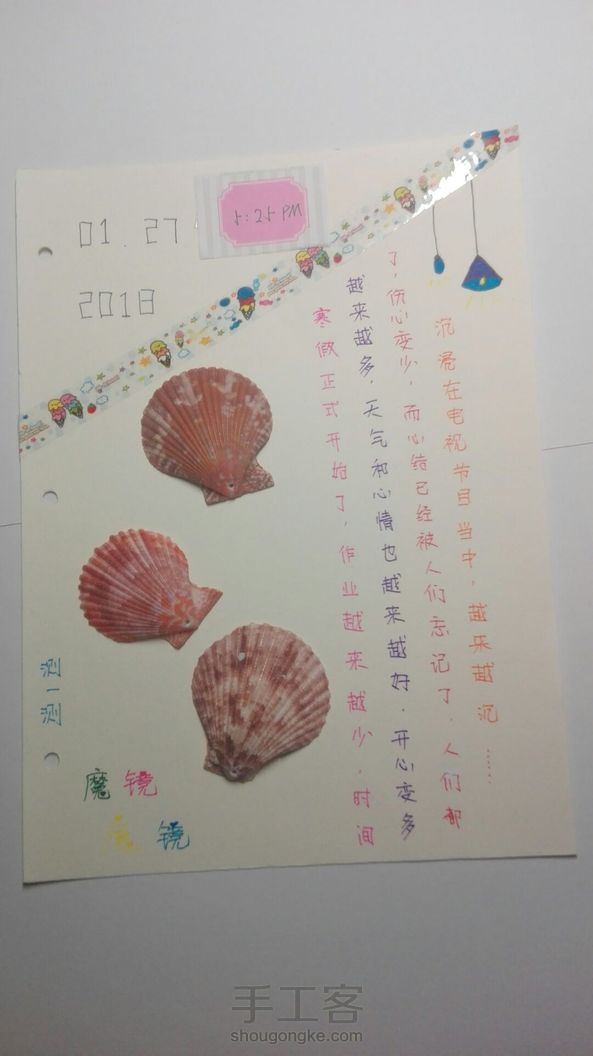 01.27
5:25 PM
2018
寒假正式开始了，作业越来越少，时间
越来越多，天气和心情也越来越好，开心变多
了，伤心变少，而心结已经被人们忘记了，人们都
沉浸在电视节目当中，越来越沉……
测一测
魔镜
镜
手工客
shougongke.com